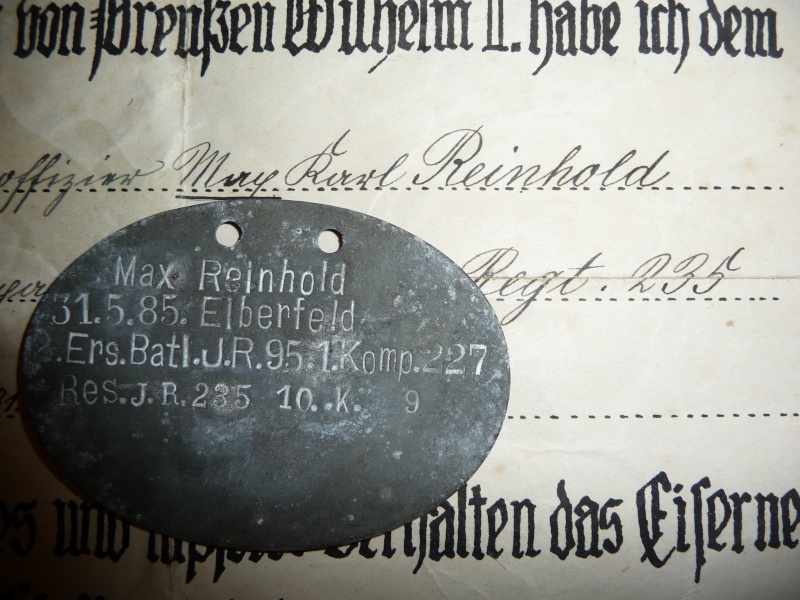 von Preußen Wilhelm II. habe ich dem
offizier Max Karl Reinhold
Regt. 235
Max Reinhold
31.5.85. Elberfeld
2.Ers.Batl.J.R.95.1.Komp.227
Res.J.R.235 10.K. 9
es und tapferes Verhalten das Eiserne